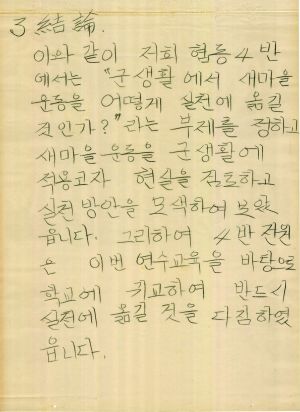 3 結論.
이와 같이 저희 협동 4 반
에서는 "군생활 에서 새마을
운동을 어떻게 실천에 옮길
것인가?"라는 부제를 정하고
새마을 운동을 군 생활에
적용코자 현실을 검토하고
실천 방안을 모색하여 보았
읍니다. 그리하여 4 반 전원
은 이번 연수교육을 바탕으로
학교에 귀교하여 반드시
실천에 옮길 것을 다짐하였
읍니다.